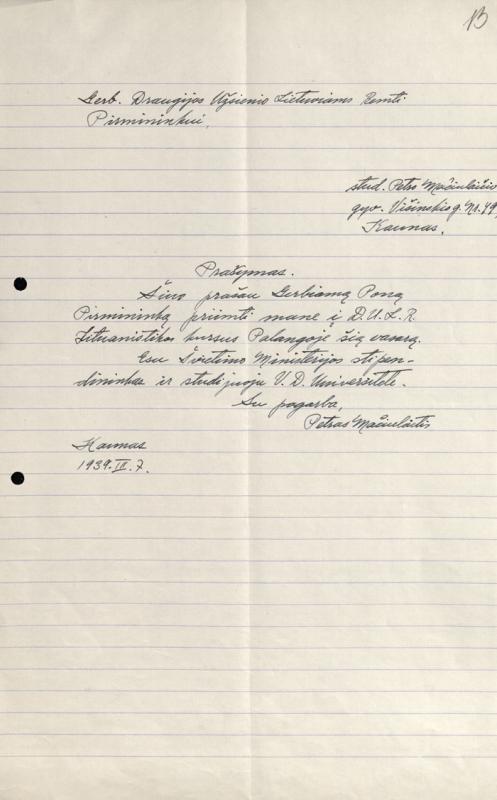 13
Gerb. Draugijos Užsienio Lietuviams Remti
Pirmininkui,
stud. Petro Mačiulaičio
gyv. Višinskio g. Nr. 49,
Kaunas.
Prašymas.
Šiuo prašau Gerbiamą Poną
Pirmininką priimti mane į D.U.L.R.
Lituanistikos kursus Palangoje šią vasarą.
Esu Švietimo Ministerijos stipen-
dininkas ir studijuoju V. D. Universitete.
Su pagarba,
Petras Mačiulaitis
Kaunas
1939. 7.